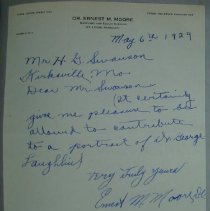 DR. ERNEST M. MOORE
May 6th 1929
Mr. H G. Swanson
Kirksville, Mo.
Dear Mr Swanson
It certainly
give me pleasure to be
allowed to contribute
to a portrait of Dr George
Laughlin!
Very truly yours
Ernest M Moore